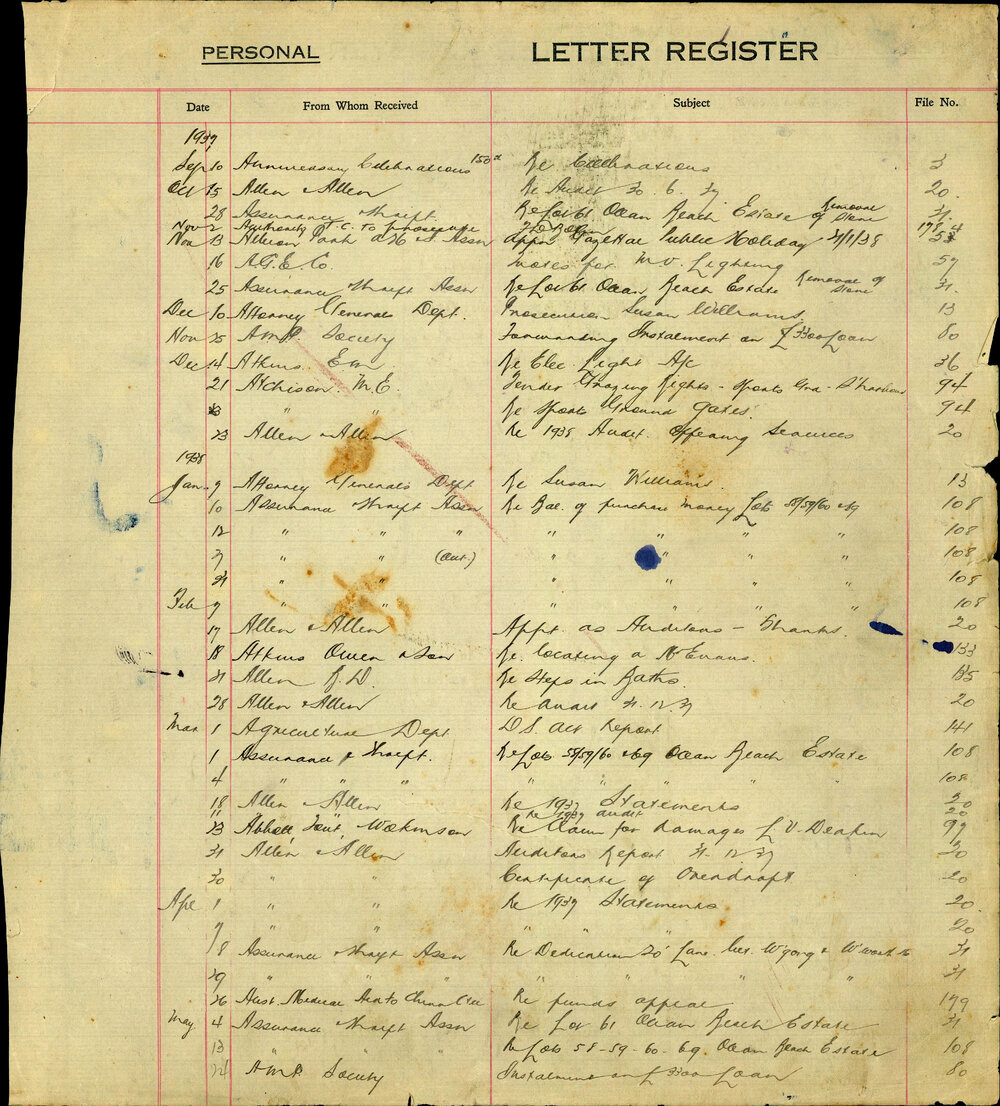 PERSONAL LETTER REGISTER
Date From Whom Received Subject File No.
1937
Sep 10 Anniversary Celebrations 150th Re Celebrations 3
Oct 15 Allen & Allen Re Audit 30 6. 37 20
28 Assurance & Thrift Re Lot 61 Ocean Beach Estate Removal of Stone 31
Nov 2 Authority T.C. to Prosecute
Nov 13 Albion Park A H & I Assn Appn Gazettal Public Holiday 21/1/38 53
16 A.G.E. Co. Notes for M.V. Lighting 57
25 Assurance & Thrift Assn Re Lot 61 Ocean Beach Estate Removal of Stone 31
Dec 10 Attorney Generals Dept. Prosecution Susan Williams 13
Nov 25 A.M.P. Society Forwarding Instalment on £3300 Loan 80
Dec 14 Atkins E W Re Elec Light A/c 36
21 Atchison M.E. Tender Grazing Rights - Sports Grd - S'harbour 94
" " Re Sports Ground Gates 94
23 Allen & Allen Re 1938 Audit. Offering Services 20
1938
Jan 7 Attorney Generals Dept Re Susan Williams 13
10 Assurance & Thrift Assn Re Bal. of purchase money Lots 58/59/60 & 69 108
12 " " " " " " " 108
" " (Out.) " " " " 108
" " " " " " 108
Feb 7 " " " " " " 108
17 Allen & Allen Appt. as Auditors - Thanks. 20
18 Atkins Owen & Son Re. locating a Mr Evans. 133
21 Allen R. D. Re Steps in Baths. 135
28 Allen & Allen Re Audit 31. 12 37 20
Mar 1 Agriculture Dept D.S. Act Report 141
1 Assurance & Thrift. Re Lots 58/59/60 & 69 Ocean Beach Estate 108
4 " " " " " " " 108
18 Allen & Allen Re 1937 Statements 20
11 Re 1937 audit 20
23 Abbott Tout, Wilkinson Re Claim for damages L. V. Deakin 99
31 Allen & Allen Auditors Report 31. 12 37 20
30 " " Certificate of Overdraft 20
Apl 1 " " Re 1937 Statements 20
7 " " " " 20
8 Assurance & Thrift Assn Re Dedication 20' Lane bet. W'gong & W'worth St 31
29 " " " " " " 31
26 Aust. Medical Aid to China Ctee Re funds appeal 179
May 4 Assurance & Thrift Assn Re Lot 61 Ocean Beach Estate 31
13 " " " Re Lots 58-59-60-69. Ocean Beach Estate 108
24 A.M.P. Society Instalment on £3300 Loan 80